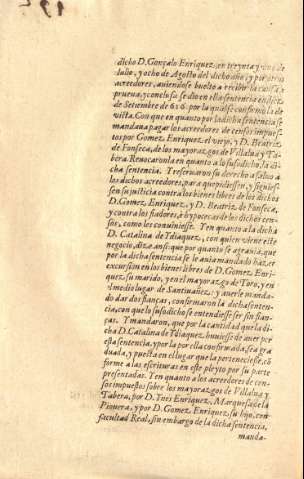 dicho D. Gonçalo Enriquez, en treynta y uno de
Iulio, y ocho de Agosto del dicho año, y por otros
acreedores, auiendose buelto a recibir la causa a
prueua, y conclusa se dio en ella sentencia en diez
de Setiembre de 616. por la qual se confirmò la de
vista. Con que en quanto por la dicha sentencia se
mandaua pagar los acreedores de censos impues-
tos por Gomez Enriquez, el viejo, y D. Beatriz
de Fonseca, de los mayorazgos de Villalua y Ta-
bera. Reuocaron la en quanto a lo susodicho, la di-
cha sentencia. Y reseruaron su derecho a saluo a
los dichos acreedores, para que pidiessen, y siguies-
sen su justicia contra los bienes libres de los dichos
D. Gomez Enriquez, y D. Beatriz de Fonseca,
y contra los fiadores, è hypotecas de los dichos cen-
sos, como les conuiniesse. Y en quanto a la dicha
D. Catalina de Ydiaquez, con quien viene este
negocio, dize ansi: que por quanto se agrauia, que
por la dicha sentencia se le auia mandado hazer
excursion en los bienes libres de D. Gomez Enri-
quez, su marido, y en el mayorazgo de Toro, y en
el medio lugar de Santiuañez: y auerle manda-
do dar dos fianças, confirmaron la dicha senten-
cia, con que lo susodicho se entendiesse ser sin fian-
ças. Y mandaron, que por la cantidad que la di-
cha D. Catalina de Ydiaquez, huuiesse de auer por
esta sentencia, y por la por ella confirmada, sea gra
duada, y puesta en el lugar que la perteneciesse, cõ
forme a las escrituras en este pleyto por su parte
presentadas. Y en quanto a los acreedores de cen-
sos impuestos sobre los mayorazgos de Villalua y
Tabera, por D. Ynes Enriquez, Marquesa de la
Piouera, y por D. Gomez Enriquez, su hijo, con
facultad Real, sin embargo de la dicha sentencia,
manda-